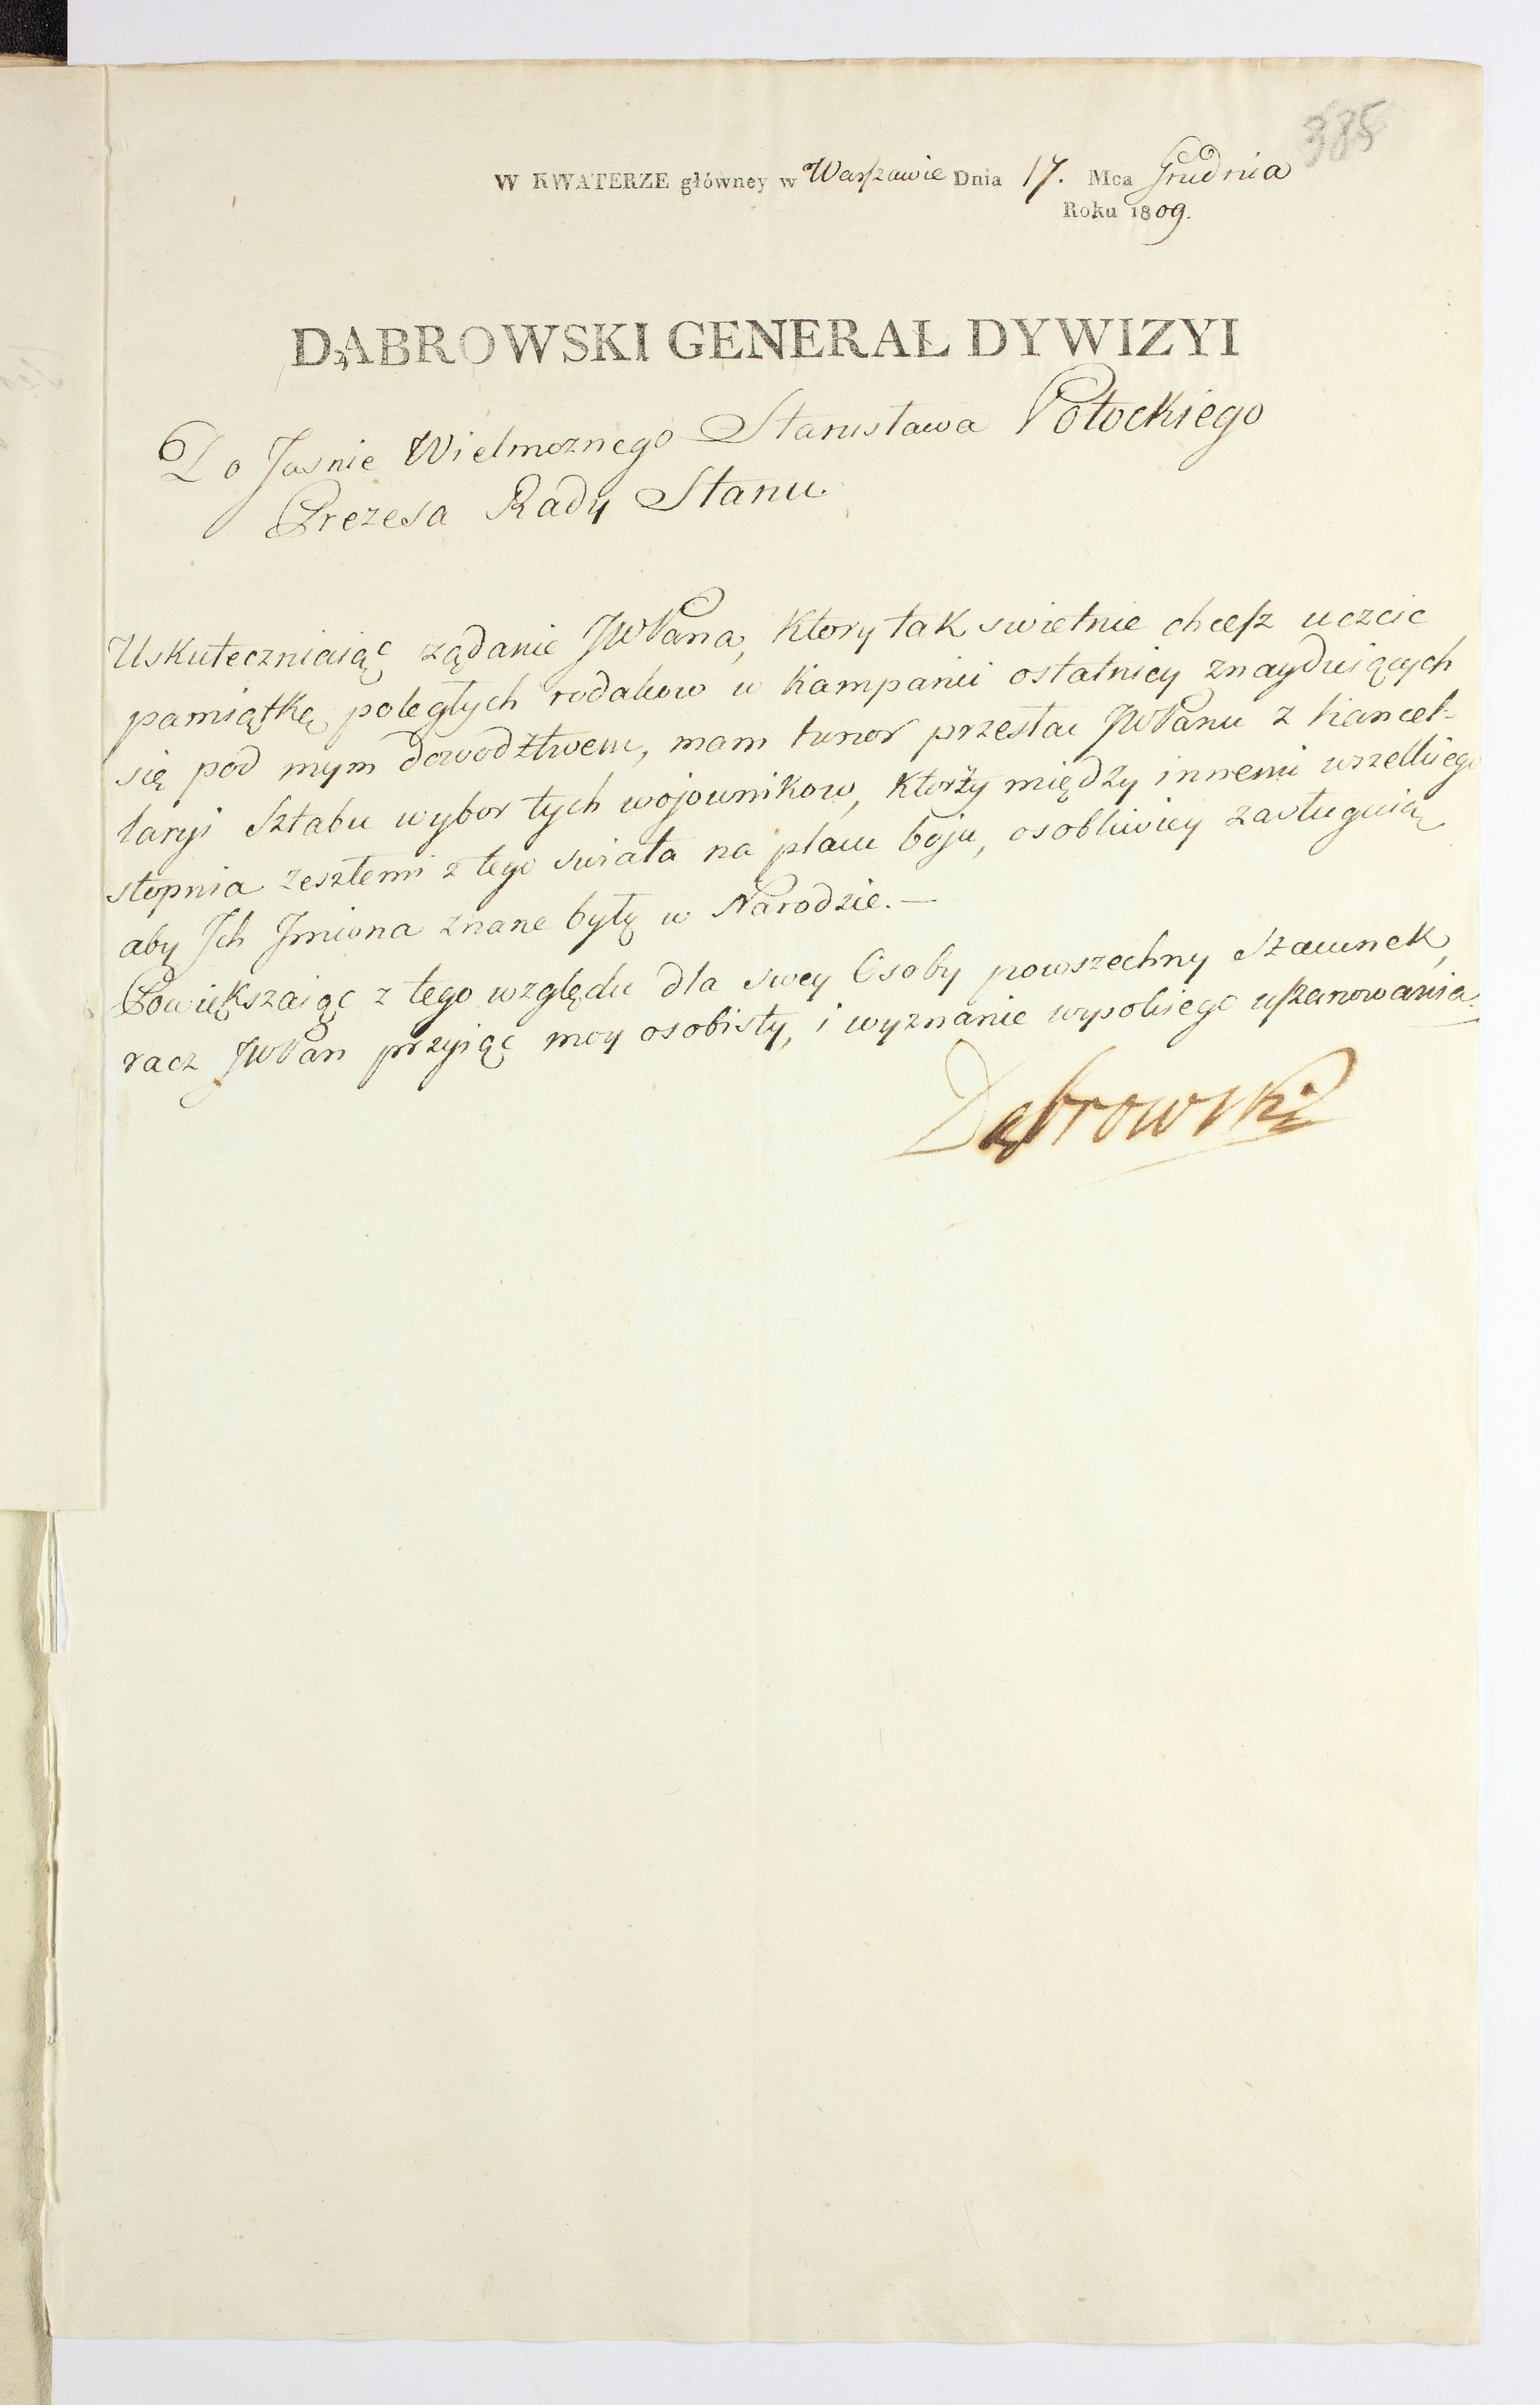 385
W KWATERZE główney w Warszawie Dnia 17. Mca Grudnia
Roku 1809.
DĄBROWSKI GENERAŁ DYWIZYI
Do Jasnie Wielmoznego Stanisława Potockiego
Prezesa Rady Stanu.
Uskuteczniaiąc ządanie JWPana, ktory tak swietnie chcesz uczcic
pamiątkę poległych rodakow w kampanii ostatniey znayduiących
się pod mym dowodztwem, mam hunor przesłac JWPanu z kancel-
laryi Sztabu wybor tych wojownikow, ktorzy między innemi wszelkiego
stopnia zeszłemi z tego swiata na placu boju, osobliwiey zasługuią
aby Ich Imiona znane były w Narodzie.—
Powiększaiąc z tego względu dla swey Osoby powszechny szacunek,
racz JWPan przyiąc moy osobisty, i wyznanie wysokiego uszanowania.
Dąbrowski